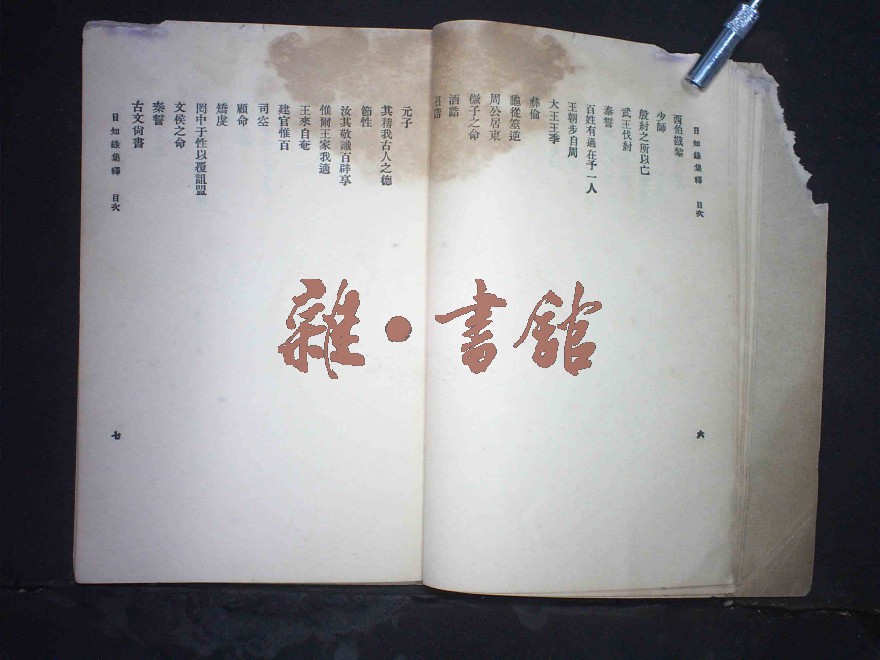 日知錄集釋 目次
西伯戡黎
少師
殷紂之所以亡
武王伐紂
泰誓
百姓有過在予一人
王朝步自周
大王王季
彝倫
龜從筮逆
周公居東
微子之命
酒誥
召誥
六
元子
其稽我古人之德
節性
汝其敬識百辟享
惟爾王家我適
王來自奄
建官惟百
司空
顧命
矯虔
罔中于信以覆詛盟
文侯之命
秦誓
古文尚書
日知錄集釋 目次
七
雜·書館